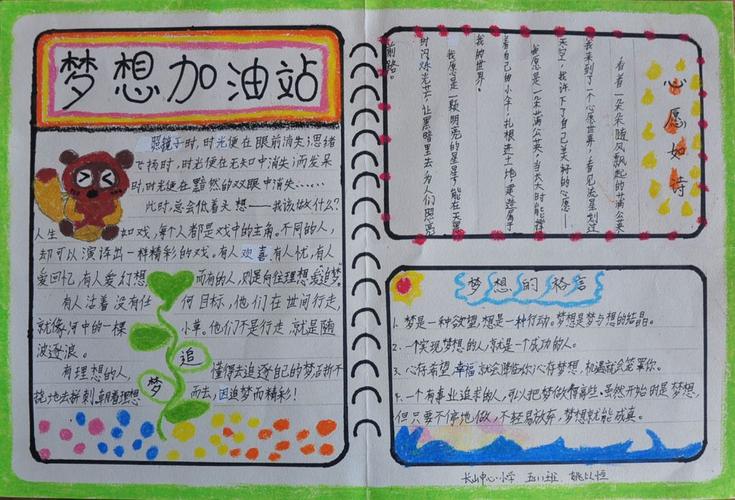 梦想加油站
照镜子时,时光便在眼前消失;思绪
飞扬时,时光便在无知中消失;而发呆
时,时光便在黯然的双眼中消失……
此时,总会低着头想——我该做什么?
人生如戏,每个人都是戏中的主角,不同的人,
却可以演绎出一样精彩的戏。有人欢喜,有人忧,有人
爱回忆,有人爱幻想,而有的人,则是向往理想,爱追梦。
有人活着没有任何目标,他们在世间行走,
就像河中的一棵小草。他们不是行走,就是随
波逐浪。
有理想的人,懂得去追逐自己的梦,百折不
挠地去拼刺,朝着理想而去,因追梦而精彩!
追
梦
心愿如诗
看着一朵朵随风飘起的蒲公英
我来到了一个心愿世界,看见流星划过
天空,我许下了自己美好的心愿——
我愿是一朵蒲公英,当大大时能撑
着自己的小伞,扎根进土地,塑造属于
我的世界。
我愿是一颗明亮的星星,能在天黑
时闪烁光芒,让黑暗里去为人们照亮
前路。
梦想的格言
1.梦是一种欲望,想是一种行动。梦想是梦与想的结晶。
2.一个实现梦想的人,就是一个成功的人。
3.心存希望,幸福就会降临你;心存梦想,机遇就会笼罩你。
4.一个有事业追求的人,可以把梦做得高些。虽然开始时是梦想,
但只要不停地做,不轻易放弃,梦想就能成真。
长山中心小学 五(1)班